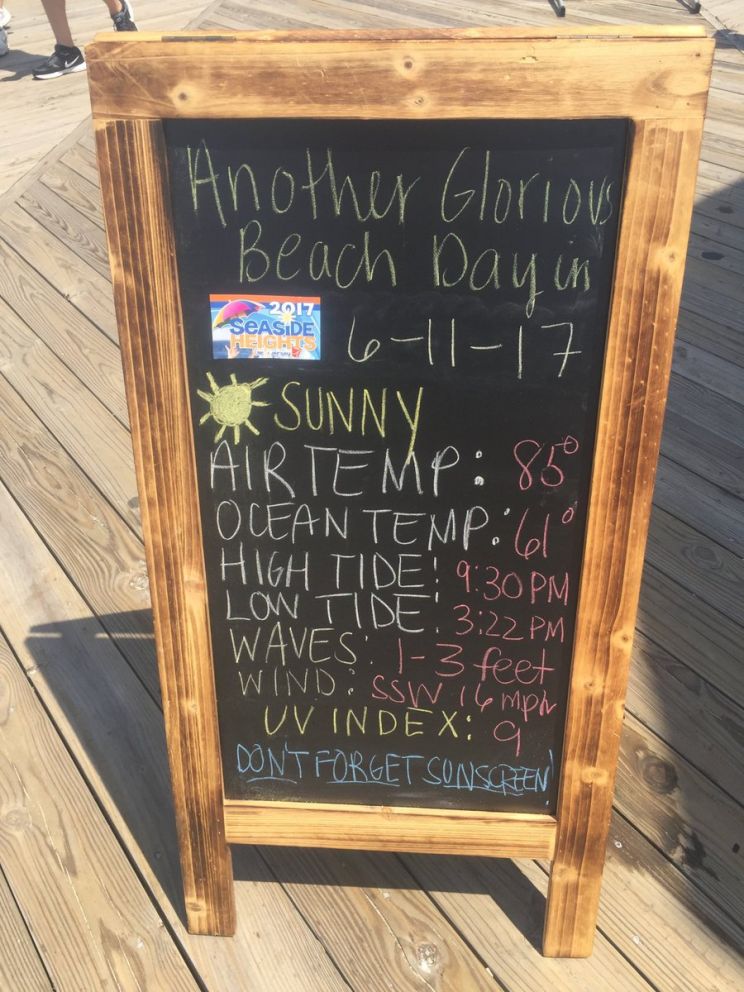 Another Glorious
Beach Day in
2017
SEASIDE
HEIGHTS
6-11-17
SUNNY
AIR TEMP: 85°
OCEAN TEMP: 61°
HIGH TIDE: 9:30 PM
LOW TIDE: 3:22 PM
WAVES: 1-3 feet
WIND: SSW 16 mph
UV INDEX: 9
DON'T FORGET SUNSCREEN!